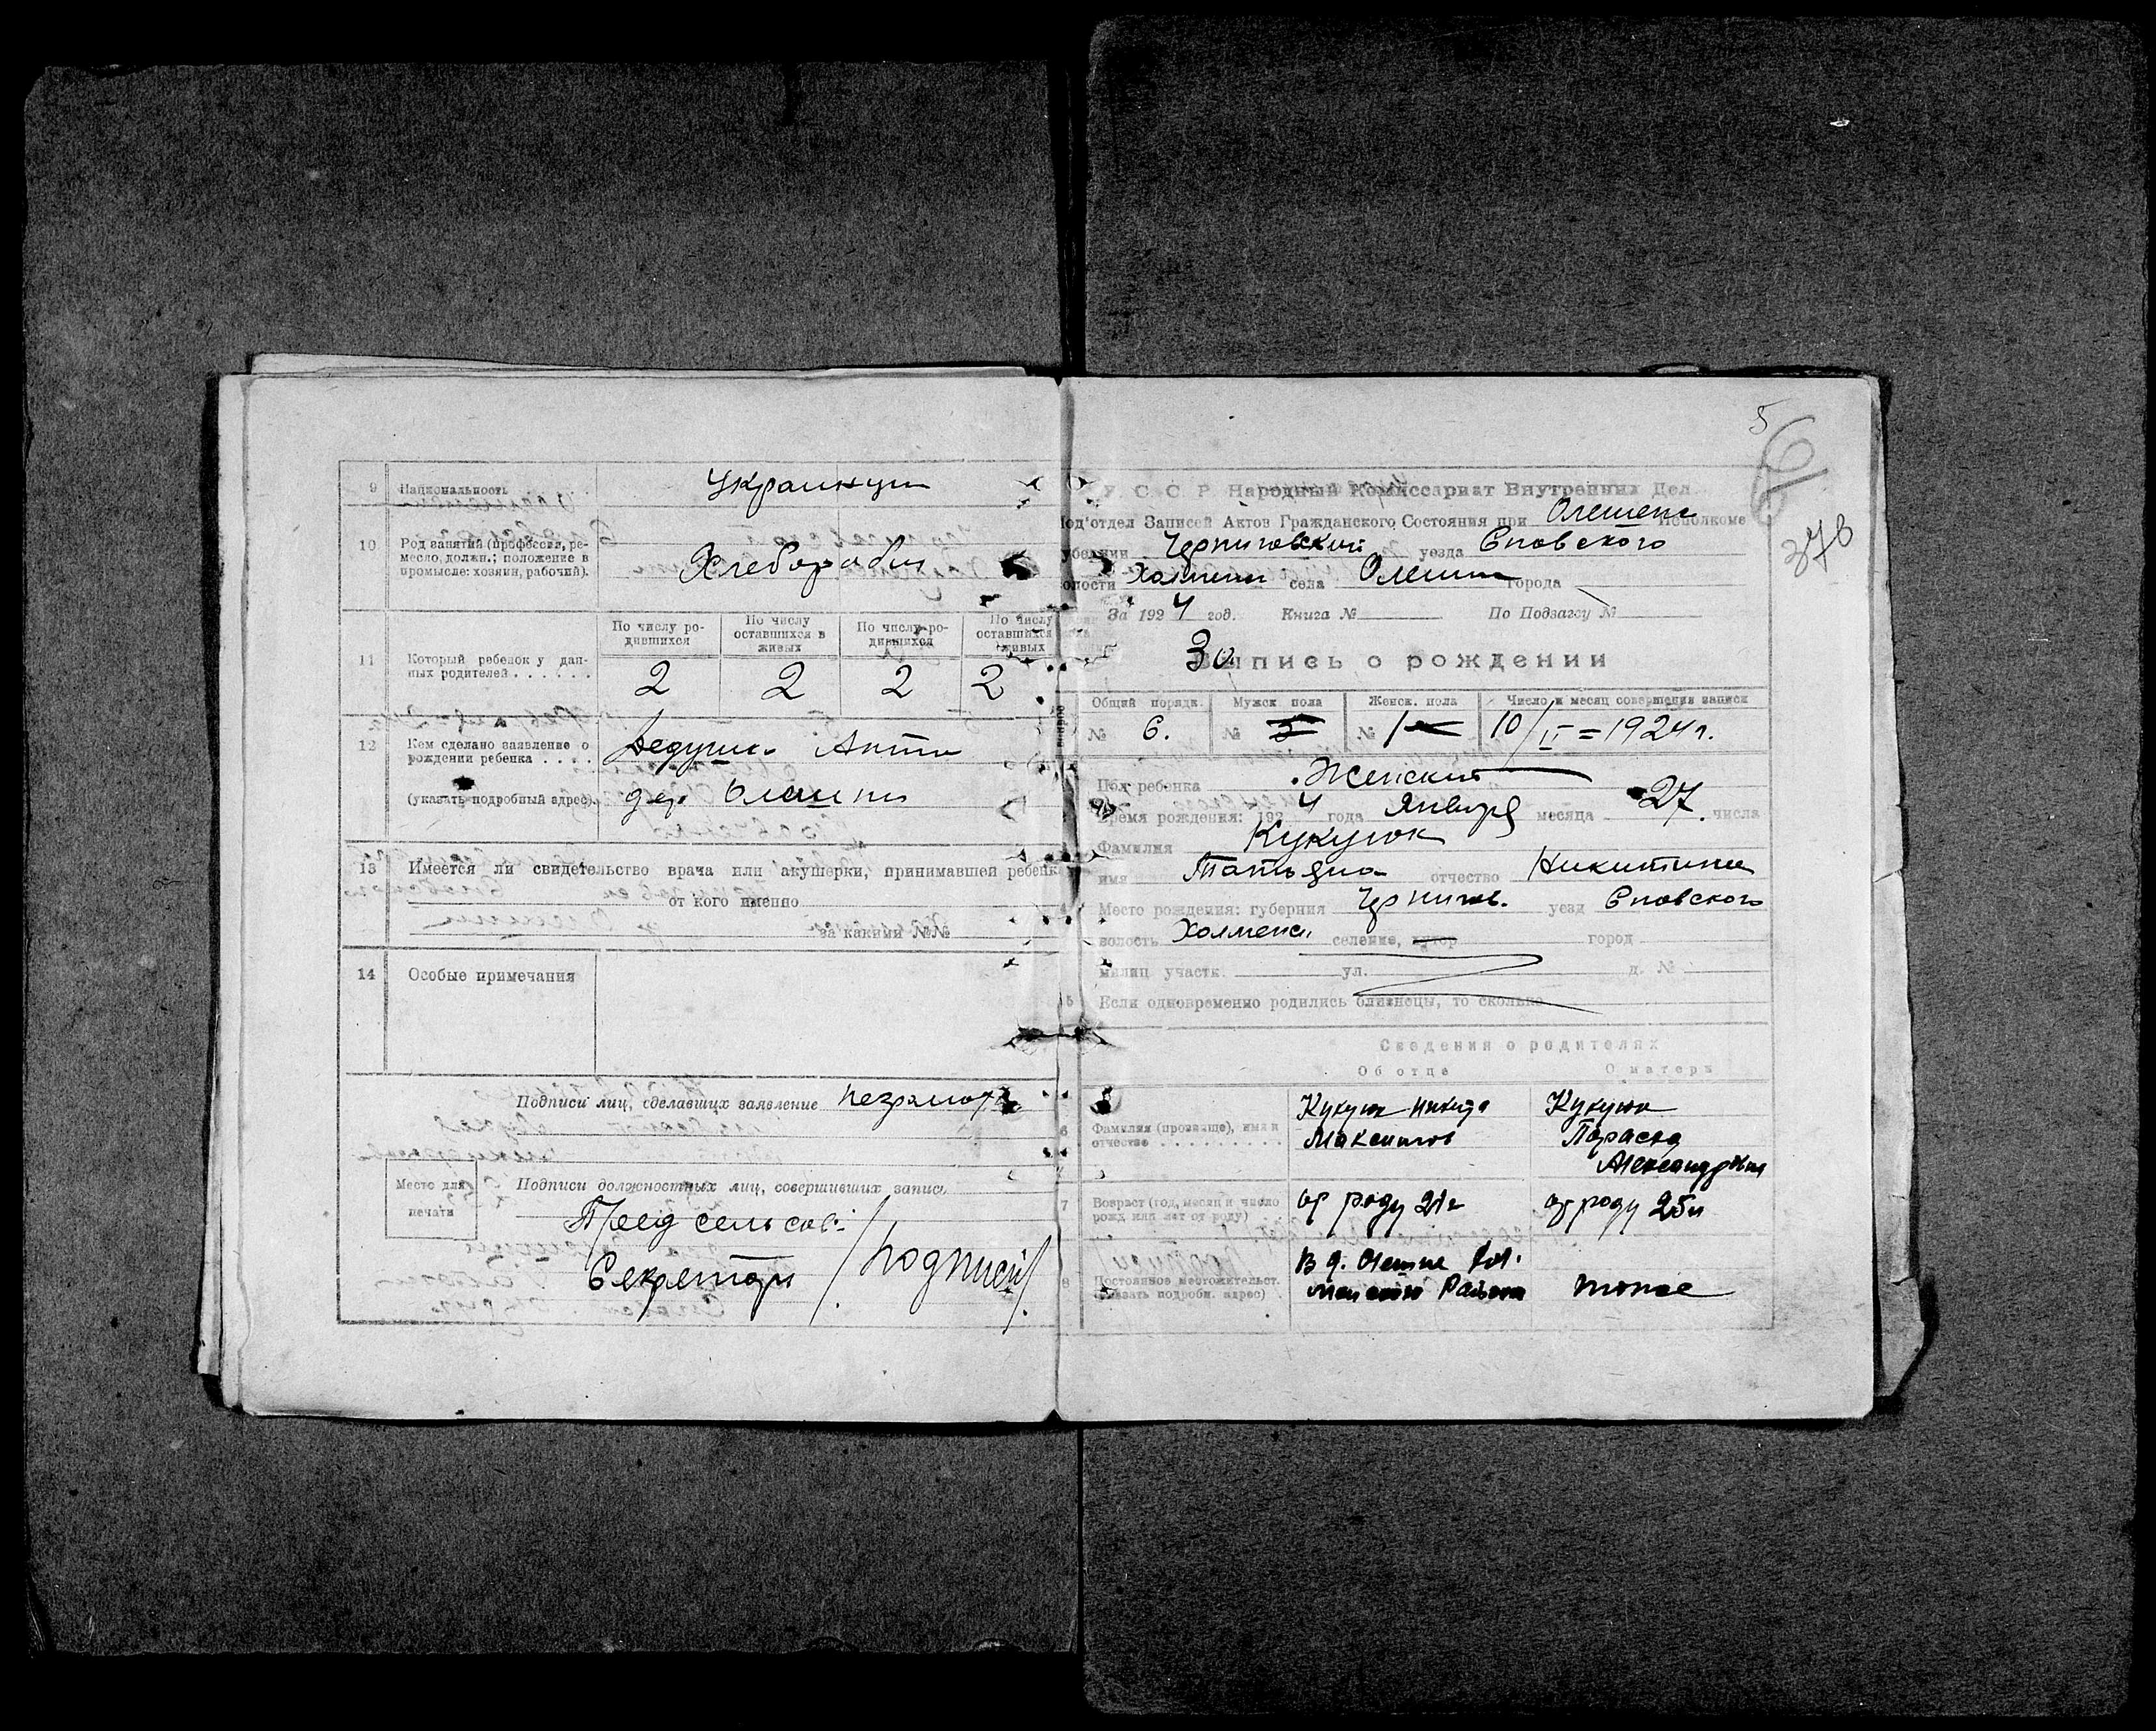 9 Национальность Украинцы
10 Род занятий (профессия, ремесло, должн.; положение в промысле: хозяин, рабочий).
Хлеборобы
По числу родившихся По числу оставшихся в живых По числу родившихся По числу оставшихся в живых
11 Который ребенок у данных родителей . . . . . .
2 2 2 2
12 Кем сделано заявление о рождении ребенка . . . .
(указать подробный адрес).
дер.
13 Имеется ли свидетельство врача или акушерки, принимавшей ребенка
от кого именно
за какими №№
14 Особые примечания
Подписи лиц, сделавших заявление
Место для печати
Подписи должностных лиц, совершивших запись
Пред сельсов
Секретарь /подписи/
5
66
378
У. С. С. Р. Народный Комиссариат Внутренних Дел.
Под'отдел Записей Актов Гражданского Состояния при Исполкоме
губернии Черниговской уезда Сновского
волости села города
За 1924 год. Книга № По Подзагсу №
30
Запись о рождении
Общий порядк. Мужск пола Женск. пола Число и месяц совершения записи
№ 6. № 5 № 1 10/II=1924 г.
Пол ребенка Женский
Время рождения: 1924 года Января месяца 27 числа
Фамилия Кукуюк
имя Татьяна отчество
4 Место рождения: губерния Чернигов. уезд Сновского
волость селение, хутор город
милиц участк. ул. д. №
5 Если одновременно родились близнецы, то сколько
Сведения о родителях
Об отце О матери
6 Фамилия (прозвище), имя и отчество . . . . . . . . . .
Кукуюк Никита
Кукуюк
7 Возраст (год, месяц и число рожд или лет от роду)
от роду 21
от роду 25
8 Постоянное местожительст. (указать подробн. адрес)
В д.
Района
тоже